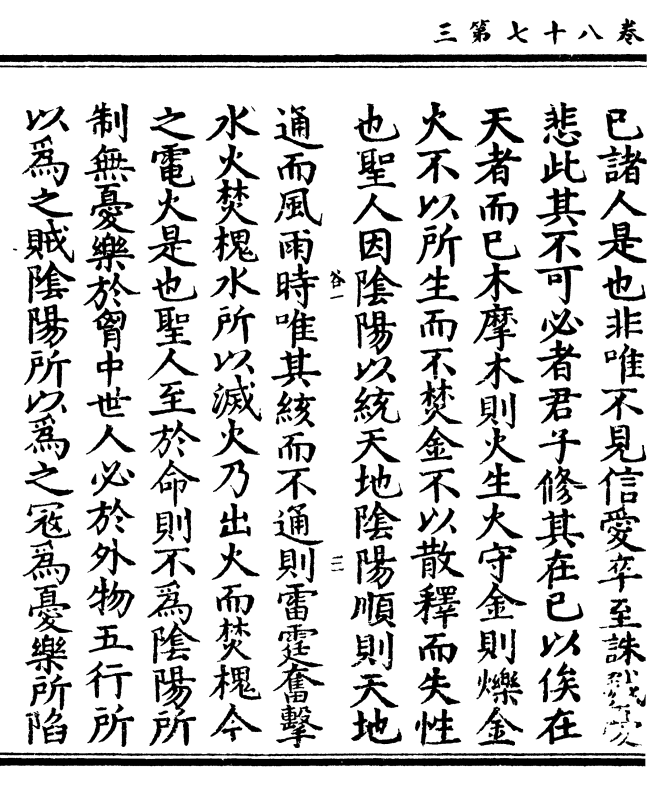 卷八十七第三
已諸人是也非唯不見信愛卒至誅
悲此其不可必者君子修其在已以俟在
天者而已木摩木則火生火守金則爍金
火不以所生而不焚金不以散釋而失性
也聖人因陰陽以統天地陰陽順則天地
谷一 三
通而風雨時唯其絯而不通則雷霆奮擊
水火焚槐水所以滅火乃出火而焚槐今
之電火是也聖人至於命則不爲陰陽所
制無憂樂於胷中世人必於外物五行所
以爲之賊陰陽所以爲之寇爲憂樂所陷